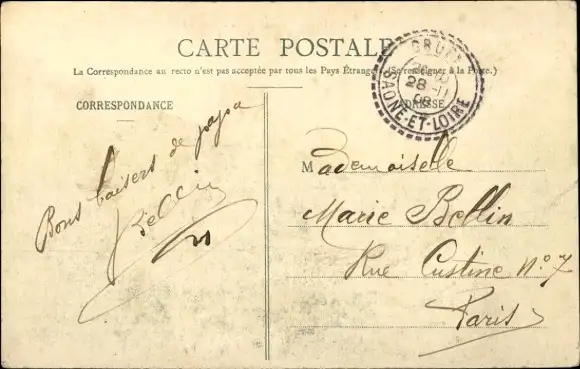 CARTE POSTALE
La Correspondance au recto n'est pas acceptée par tous les Pays Étrangers (Se renseigner à la Poste.)
CORRESPONDANCE
ADRESSE
SAONE-ET-LOIRE
28-11
Bons baisers de papa
Bellin
Mademoiselle
Marie Bellin
Rue Custine N° 7
Paris